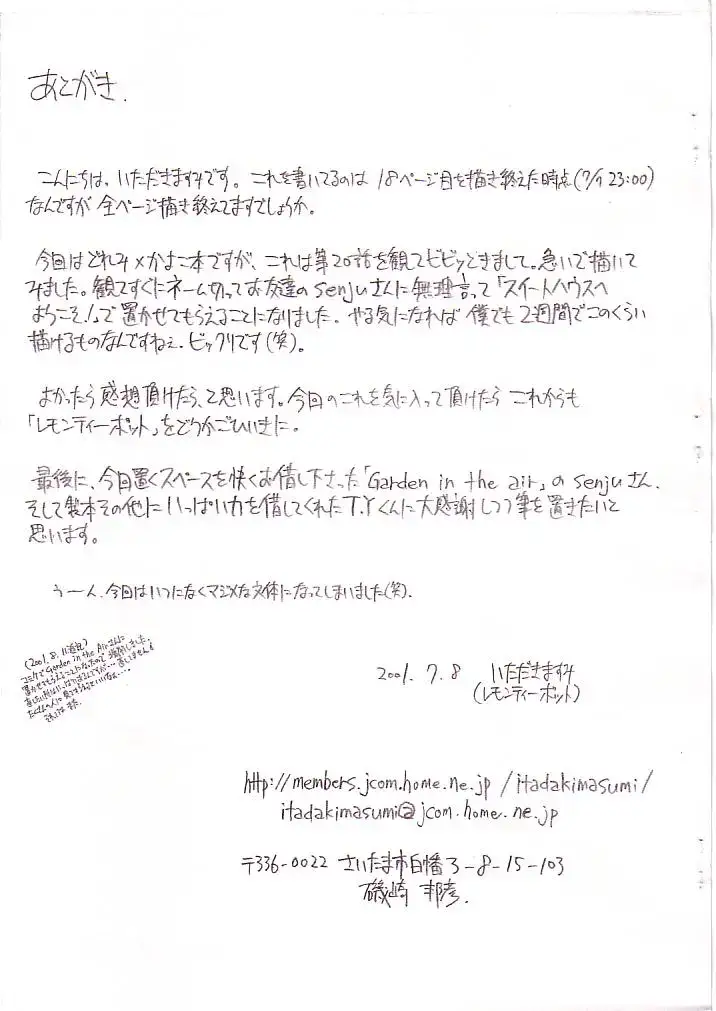 あとがき.
こんにちは、いただきますみです。これを書いてるのは 18ページ目を描き終えた時点(7/7 23:00)
なんですが 全ページ描き終えてますでしょうか。
今回はどれみ×かよこ本ですが、これは第20話を観てビビッときまして。急いで描いて
みました。観てすぐにネーム切ってお友達のsenjuさんに無理言って「スイートハウスへ
ようこそ!」で置かせてもらえることになりました。やる気になれば 僕でも2週間でこのくらい
描けるものなんですねぇ.ビックリです(笑)。
よかったら感想頂けたら、と思います。今回のこれを気に入って頂けたら これからも
「レモンティーポット」をどうかごひいきに。
最後に、今回置くスペースを快くお借し下さった「Garden in the air」のsenjuさん、
そして製本その他にいっぱい力を借してくれたT.Yくんに大感謝しつつ筆を置きたいと
思います。
うーん、今回はいつになくマジメな文体になってしまいました(笑).
(2001.8.11追記)
コミケで Garden in the Airさんに
置かせてもらえることになったので 増刷しました。
2001.7.8 いただきますみ
(レモンティーポット)
http://members.jcom.home.ne.jp/itadakimasumi/
itadakimasumi@jcom.home.ne.jp
〒336-0022 さいたま市白幡3-8-15-103
磯崎 邦彦.